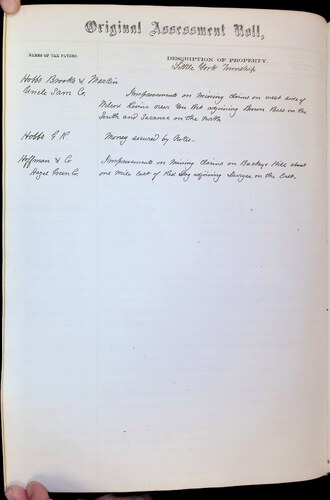 Original Assessment Roll,
NAMES OF TAX PAYERS
DESCRIPTION OF PROPERTY.
Little York Township
Hobbs Brooks & Martin
Uncle Sam Co.
Improvements on mining claims on west side of
over You Bet adjoining Brown Bros on the
South and on the North
Hobbs G. K.
Money secured by Note.
Hoffman & Co
Improvements on Mining Claims on Buckeye Hill about
Hazel Green Co.
one mile East of Red Dog adjoining Sawyer on the East.